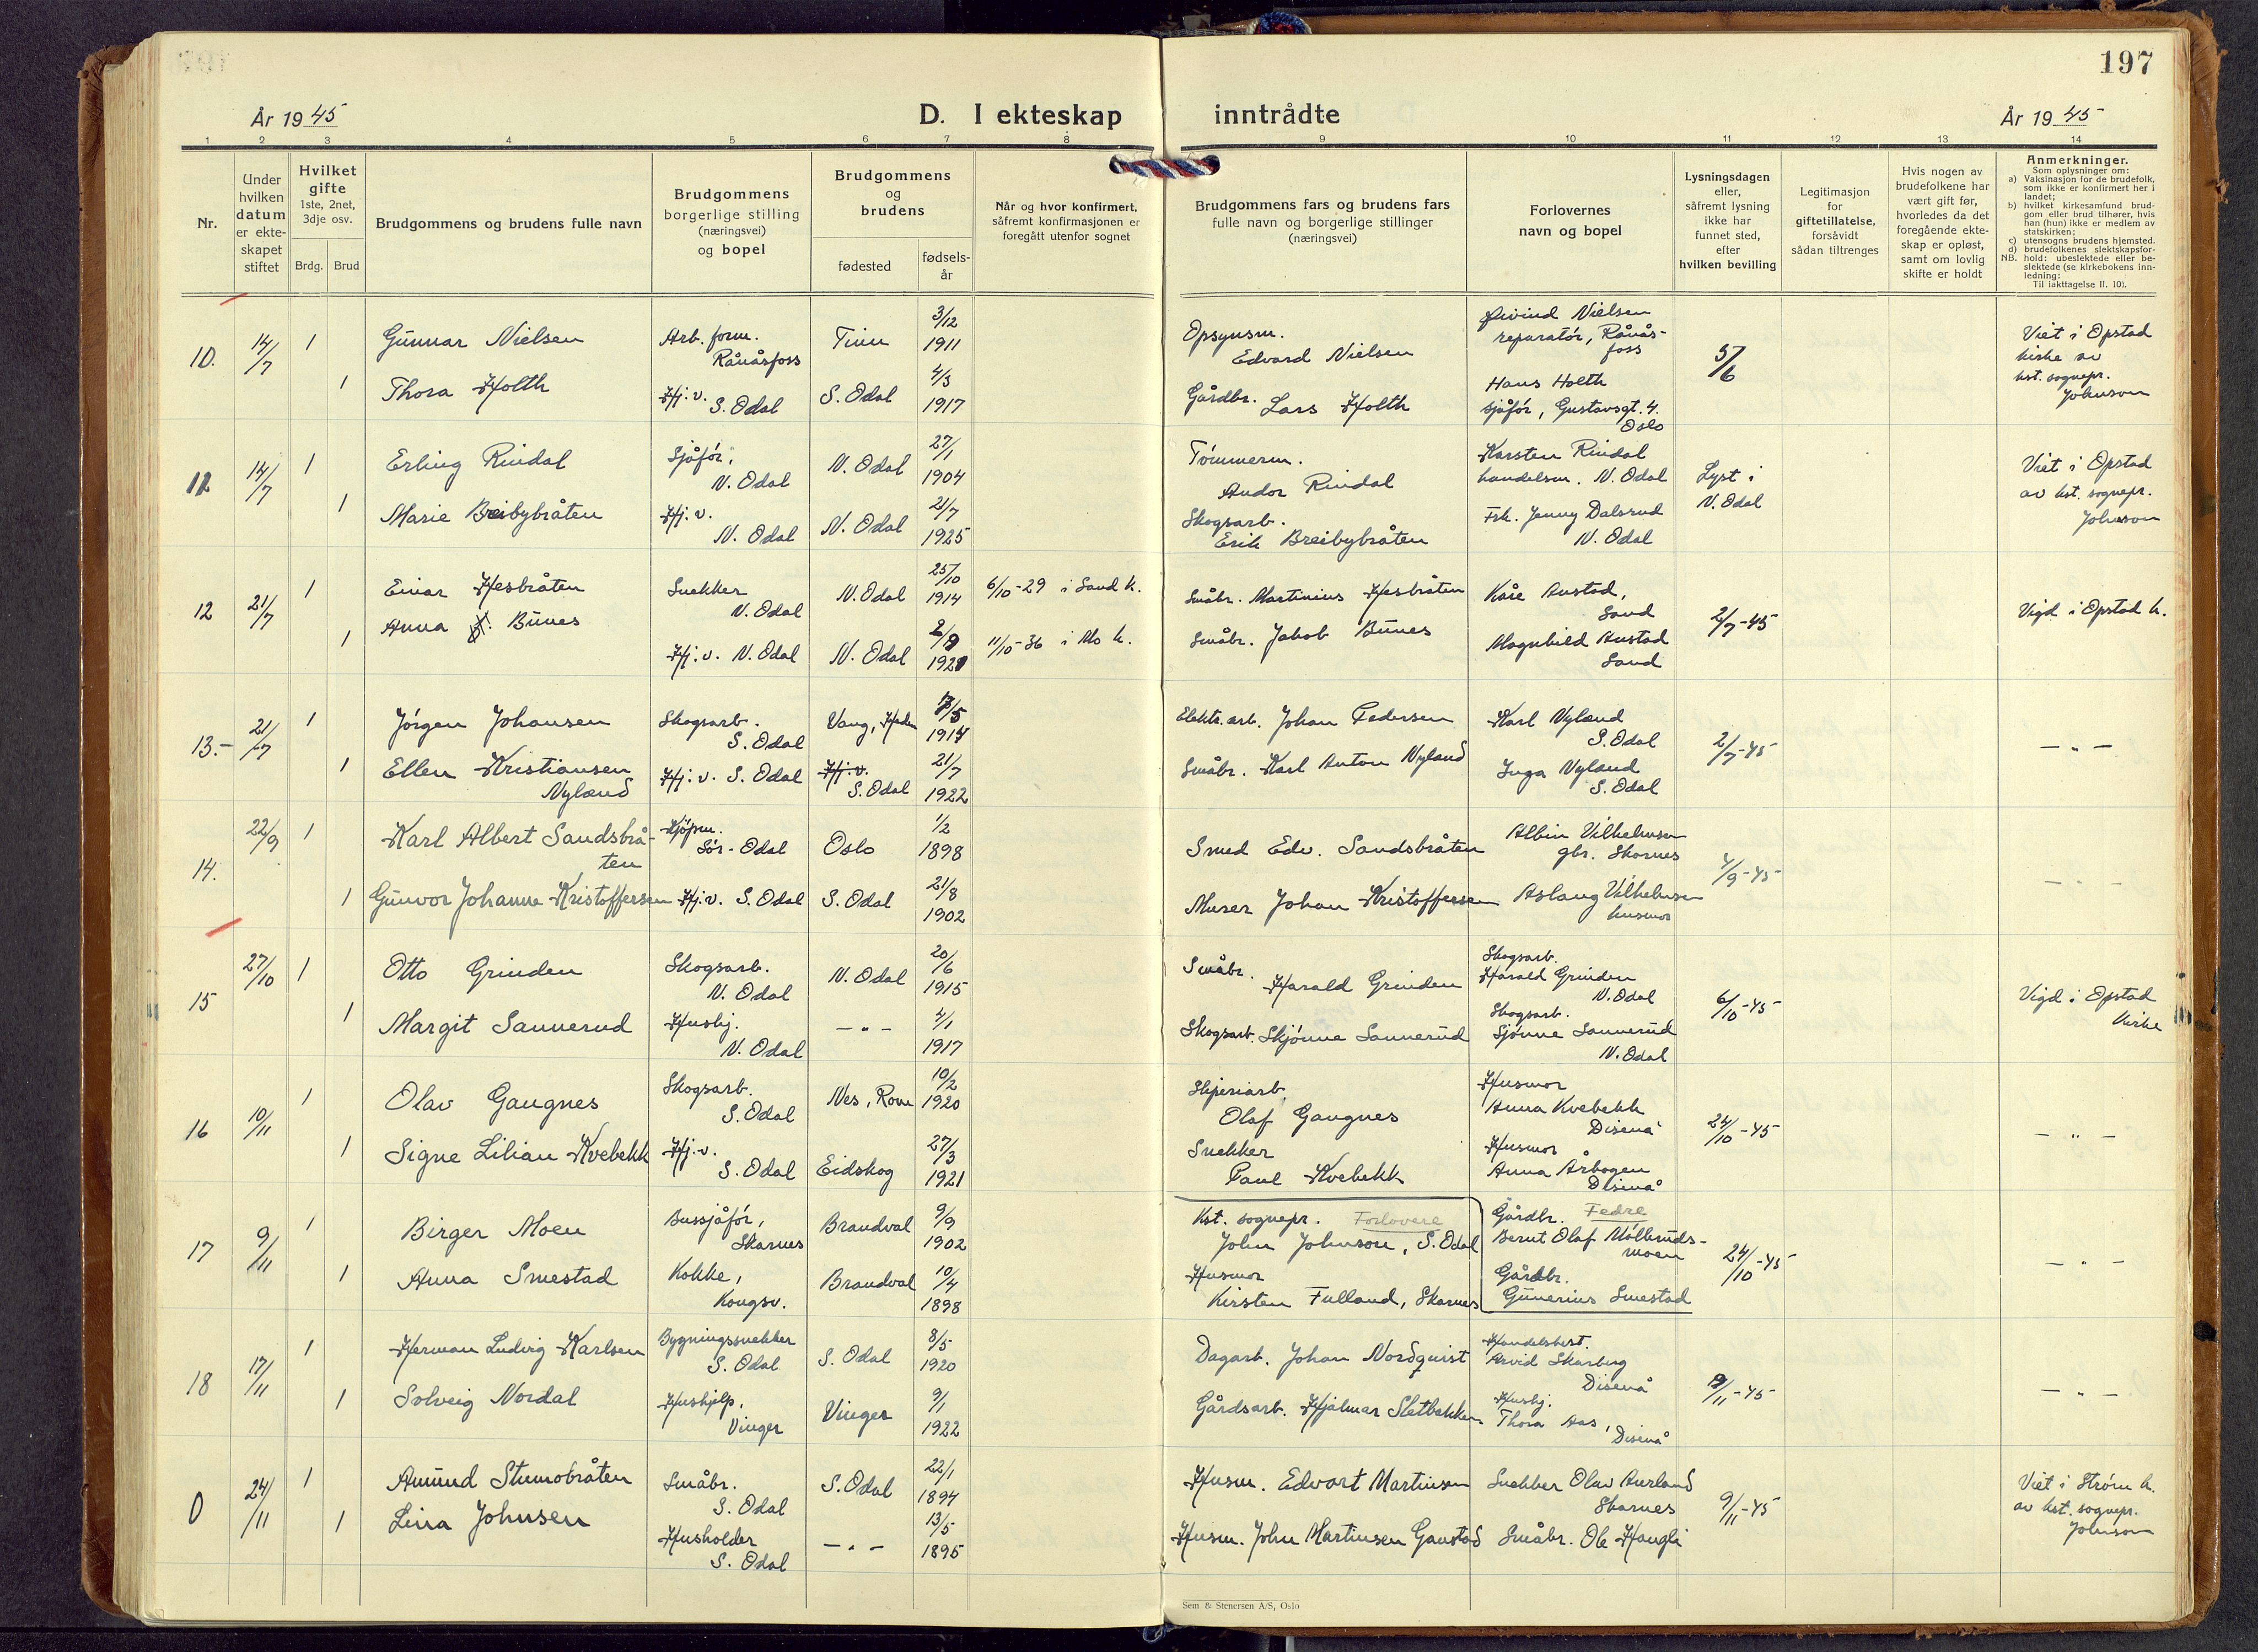 197
År 1945
D. I ekteskap inntrådte
År 1945
1 2 3 4 5 6 7 8 9 10 11 12 13 14
Nr.
Under
hvilken
datum
er ekte-
skapet
stiftet
Hvilket
gifte
1ste, 2net,
3dje osv.
Brdg. Brud
Brudgommens og brudens fulle navn
Brudgommens
borgerlige stilling
(næringsvei)
og bopel
Brudgommens
og
brudens
fødested
fødsels-
år
Når og hvor konfirmert,
såfremt konfirmasjonen er
foregått utenfor sognet
Brudgommens fars og brudens fars
fulle navn og borgerlige stillinger
(næringsvei)
Forlovernes
navn og bopel
Lysningsdagen
eller,
såfremt lysning
ikke har
funnet sted,
efter
hvilken bevilling
Legitimasjon
for
giftetillatelse,
forsåvidt
sådan tiltrenges
Hvis nogen av
brudefolkene har
vært gift før,
hvorledes da det
foregående ekte-
skap er opløst,
samt om lovlig
skifte er holdt
Anmerkninger.
Som oplysninger om:
a) Vaksinasjon for de brudefolk,
som ikke er konfirmert her i
landet;
b) hvilket kirkesamfund brud-
gom eller brud tilhører, hvis
han (hun) ikke er medlem av
statskirken;
c) utensogns brudens hjemsted.
d) brudefolkenes slektskapsfor-
NB. hold: ubeslektede eller be-
slektede (se kirkebokens inn-
ledning:
Til iakttagelse II. 10).
10. 14/7 1 Gunnar Nielsen
Arb. form.
Rånåsfoss
Tinn
3/12
1911
Opsynsm.
Edvard Nielsen
Øivind Nielsen
reparatør, Rånås-
foss
5/6
Viet i Opstad
kirke av
kst. sognepr.
Johnson
1 Thora Holth
Hj.v. S. Odal
S. Odal
4/3
1917
Gårdbr. Lars Holth
Hans Holth
sjåfør, Gustavsgt. 4.
Oslo
11 14/7 1 Erling Rindal
Sjåfør,
N. Odal
N. Odal
27/1
1904
Tømmerm.
Andor Rindal
Karsten Rindal
handelsm. N. Odal
Lyst i
N. Odal
Viet i Opstad
av kst. sognepr.
Johnson
1 Marie Breibybråten
Hj.v.
N. Odal
N. Odal
21/7
1925
Skogsarb.
Erik Breibybråten
Frk. Jenny Dalsrud
N. Odal
12 21/7 1 Einar Hesbråten
Snekker
N. Odal
N. Odal
25/10
1914
6/10-29 i Sand k.
Småbr. Martinius Hesbråten
Kåre Austad,
Sand
2/7-45
Vigd i Opstad k.
1 Anna Bunes
Hj.v. N. Odal
N. Odal
1921
11/10-36 i Mo k.
Småbr. Jakob Bunes
Magnhild Austad
Sand
13.- 21/7 1 Jørgen Johansen
Skogsarb.
S. Odal
Vang, Hedm
1914
Elektr. arb. Johan Pedersen
Karl Nyland
S. Odal
2/7-45
— " —
1 Ellen Kristiansen
Nyland
Hj.v. S. Odal
Hj.v.
S. Odal
21/7
1922
Småbr. Karl Anton Nyland
Inga Nyland
S. Odal
14. 22/9 1 Karl Albert Sandsbrå-
ten
Kjøpm.
Sør-Odal
Oslo
1/2
1898
Smed Edv. Sandsbråten
Albin Vilhelmsen
gbr. Skarnes
4/9-45
— " —
1 Gunvor Johanne Kristoffersen
Hj.v. S. Odal
S. Odal
21/8
1902
Murer Johan Kristoffersen
Aslaug Vilhelmsen
husmor
15 27/10 1 Otto Grinden
Skogsarb.
N. Odal
N. Odal
20/6
1915
Småbr.
Harald Grinden
Skogsarb.
Harald Grinden
N. Odal
6/10-45
Vigd i Opstad
kirke
1 Margit Sannerud
Hushj.
N. Odal
— " —
4/1
1917
Skogsarb. Skjønne Sannerud
Skogsarb.
Sjønne Sannerud
N. Odal
16 10/11 1 Olav Gaugnes
Skogsarb.
S. Odal
Ves, Rome
10/2
1920
Sliperiarb.
Olaf Gaugnes
Husmor
Anna Kvebekk
Disenå
24/10-45
— " —
1 Signe Lilian Kvebekk
Hj.v.
S. Odal
Eidskog
27/3
1921
Snekker
Paul Kvebekk
Husmor
Anna Årbogen
Disenå
17 9/11 1 Birger Moen
Bussjåfør,
Skarnes
Brandval
9/9
1902
Kst. sognepr. Forlovere
John Johnson, S. Odal
Gårdbr. Fedre
Bernt Olaf Mølleruds-
moen
24/10-45
— " —
1 Anna Smestad
Kokke,
Kongsv.
Brandval
10/4
1898
Husmor
Kirsten Fulland, Skarnes
Gårdbr.
Gunerius Smestad
18 17/11 1 Herman Ludvig Karlsen
Bygningssnekker
S. Odal
S. Odal
8/5
1920
Dagarb. Johan Nordquist
Handelsbest.
Arvid Skarberg
Disenå
9/11-45
— " —
1 Solveig Nordal
Hushjelp,
Vinger
Vinger
9/1
1922
Gårdsarb. Hjalmar Sletbakken
Hushj.
Thora Aas,
Disenå
0 24/11 1 Amund Stumobråten
Småbr.
S. Odal
S. Odal
22/1
1894
Husm. Edvart Martinsen
Snekker Olav Aurland
Skarnes
9/11-45
Viet i Strøm k.
av kst. sognepr.
Johnson
1 Lina Johnsen
Husholder
S. Odal
— " —
13/5
1895
Husm. John Martinsen Gaustad
Småbr. Ole Haugli
Sem & Stenersen A/S, Oslo